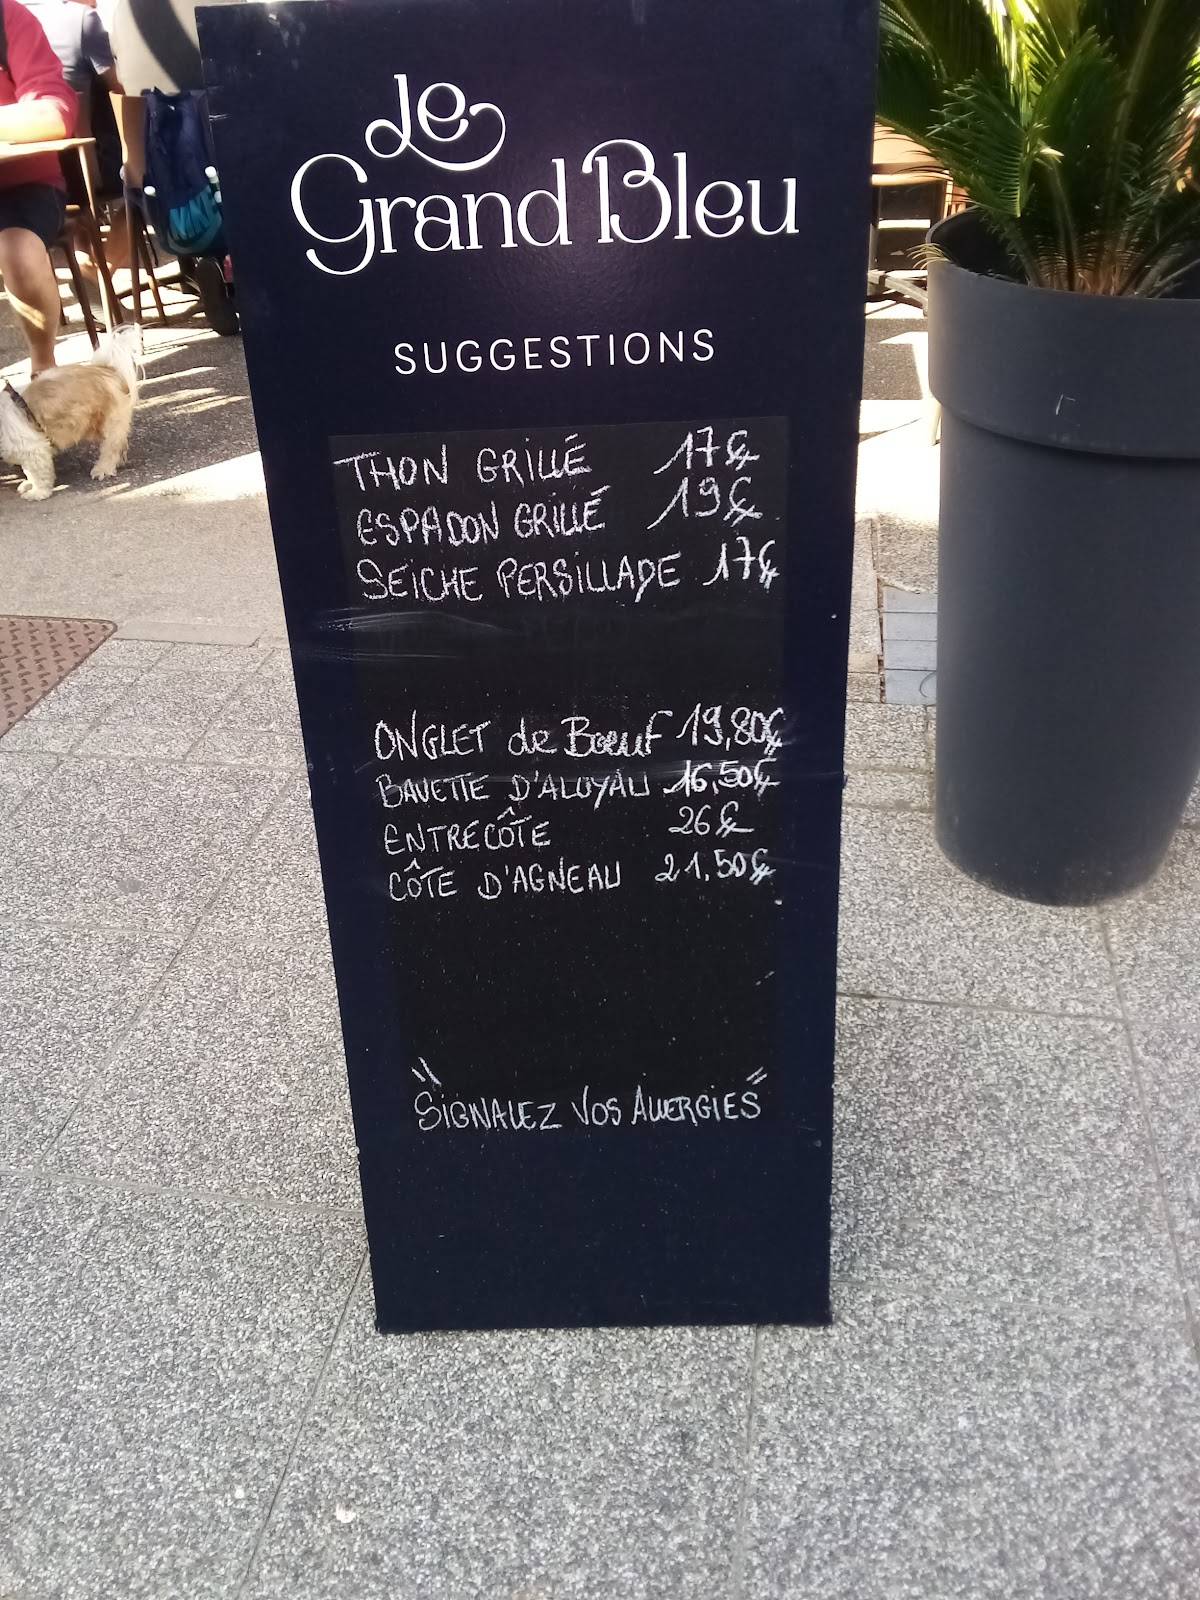 Le
Grand Bleu
SUGGESTIONS
THON GRILLÉ 17€
ESPADON GRILLÉ 19€
SEICHE PERSILLADE 17€
ONGLET de BŒUF 19,80€
BAVETTE D'ALOYAU 16,50€
ENTRECÔTE 26€
CÔTE D'AGNEAU 21,50€
SIGNALEZ VOS ALLERGIES